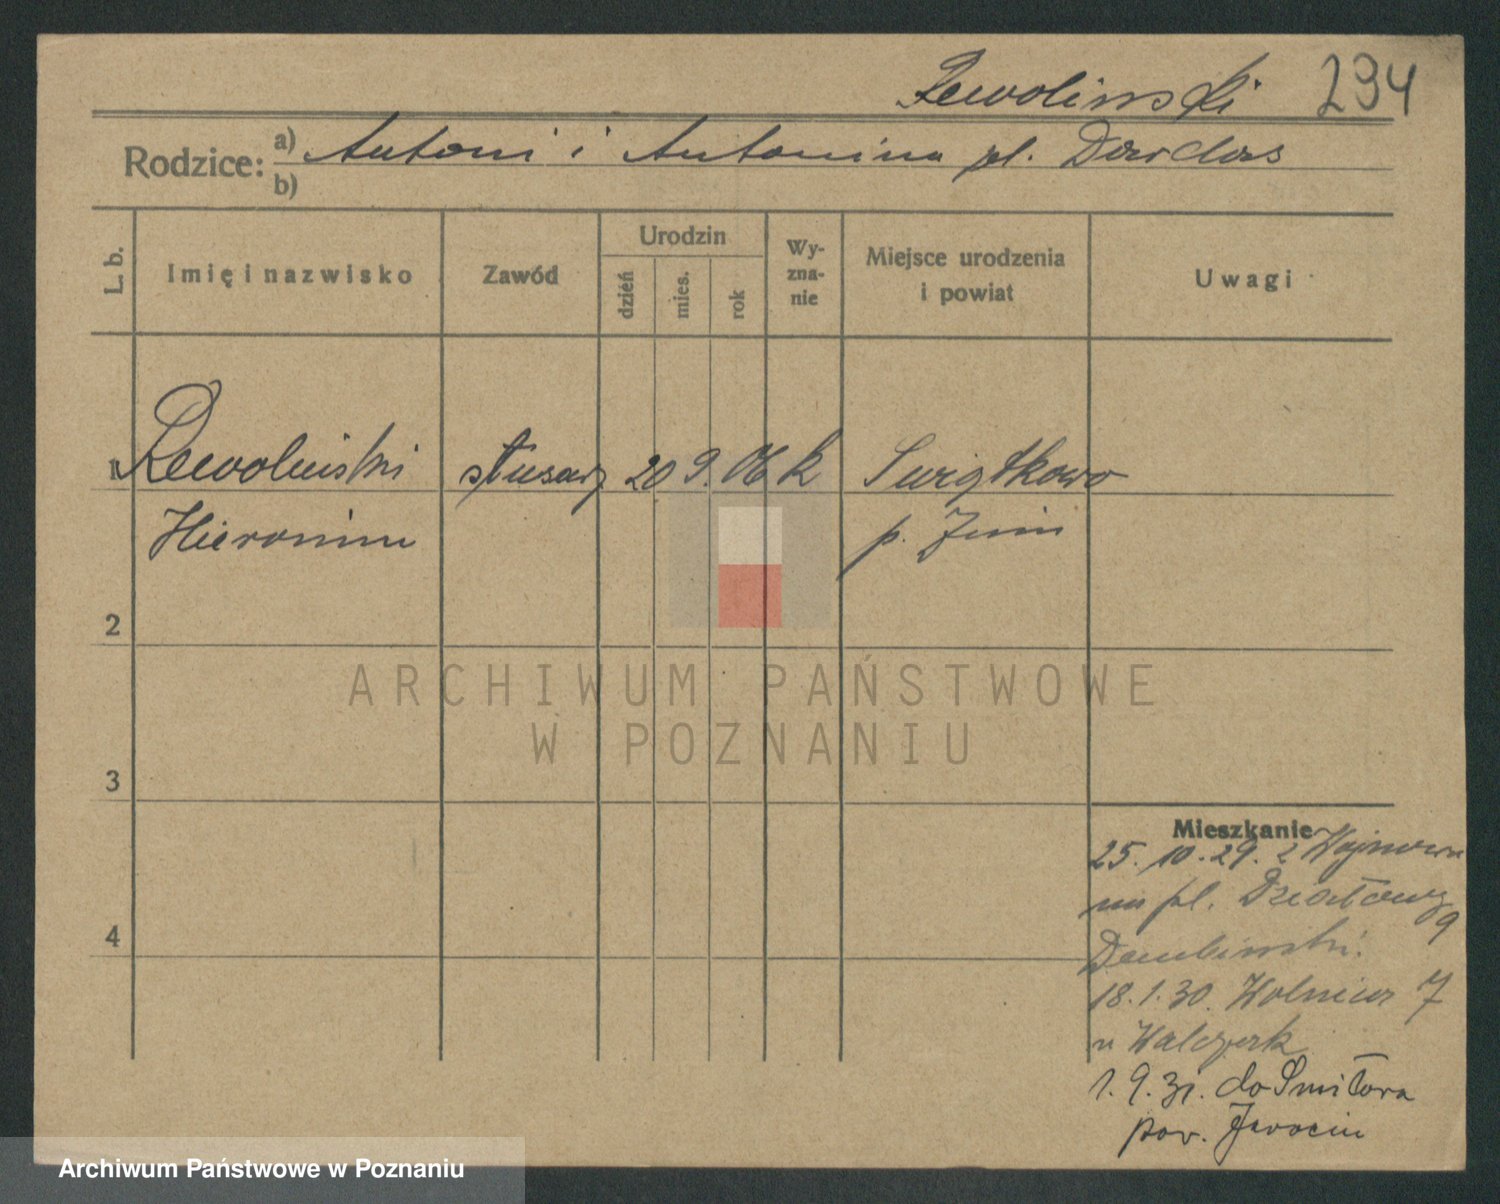 Rewolinski 294
Rodzice: a) Antoni i Antonina pl. Dardas
b)
L. b.
Imię i nazwisko
Zawód
Urodzin
dzień
mies.
rok
Wy-
zna-
nie
Miejsce urodzenia
i powiat
Uwagi
1 Rewoliński ślusarz 20 9. 06 k Świątkowo
Hieronim p. Żnin
2
3
4
Mieszkanie
25. 10. 29. z
na pl. Działowy 9
Dembinski.
18. 1. 30. Wolnica 7
u Walczak
1. 9. 31. do Śmiłowa
pow. Jarocin
ARCHIWUM PAŃSTWOWE
W POZNANIU
Archiwum Państwowe w Poznaniu